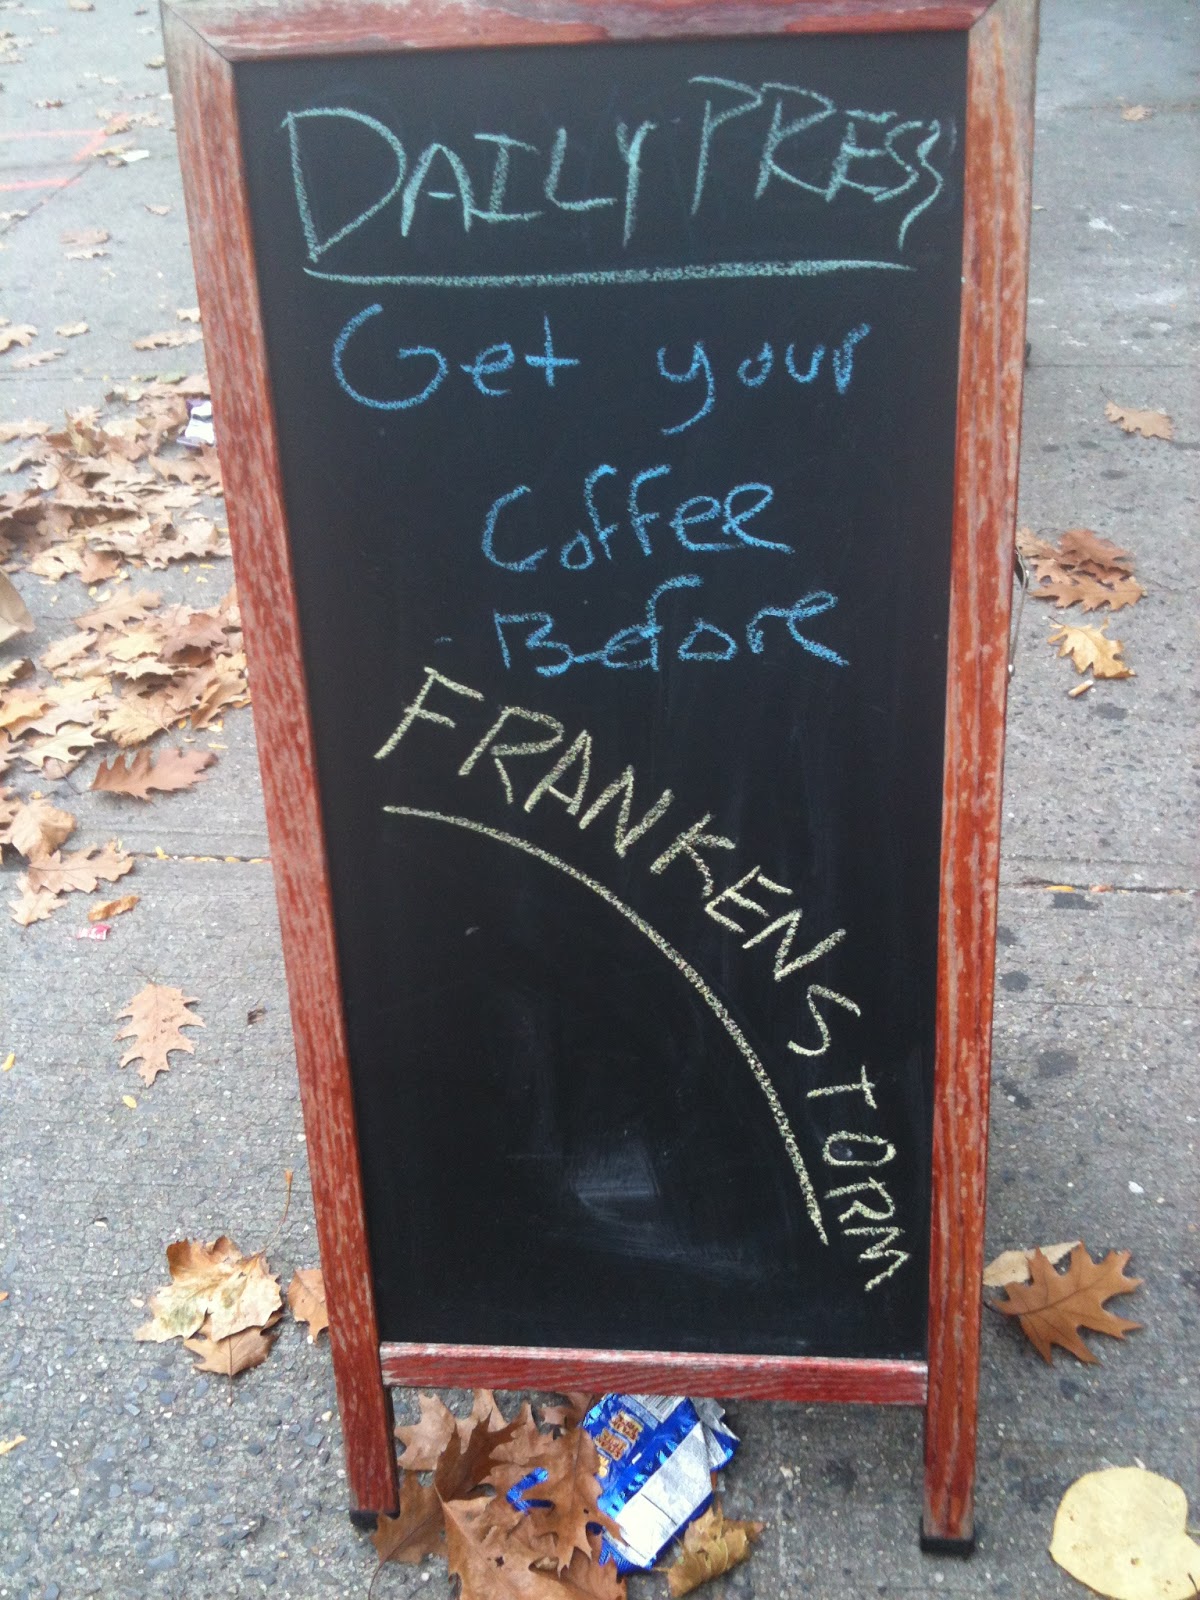 DAILY PRESS
Get your
Coffee
Before
FRANKENSTORM